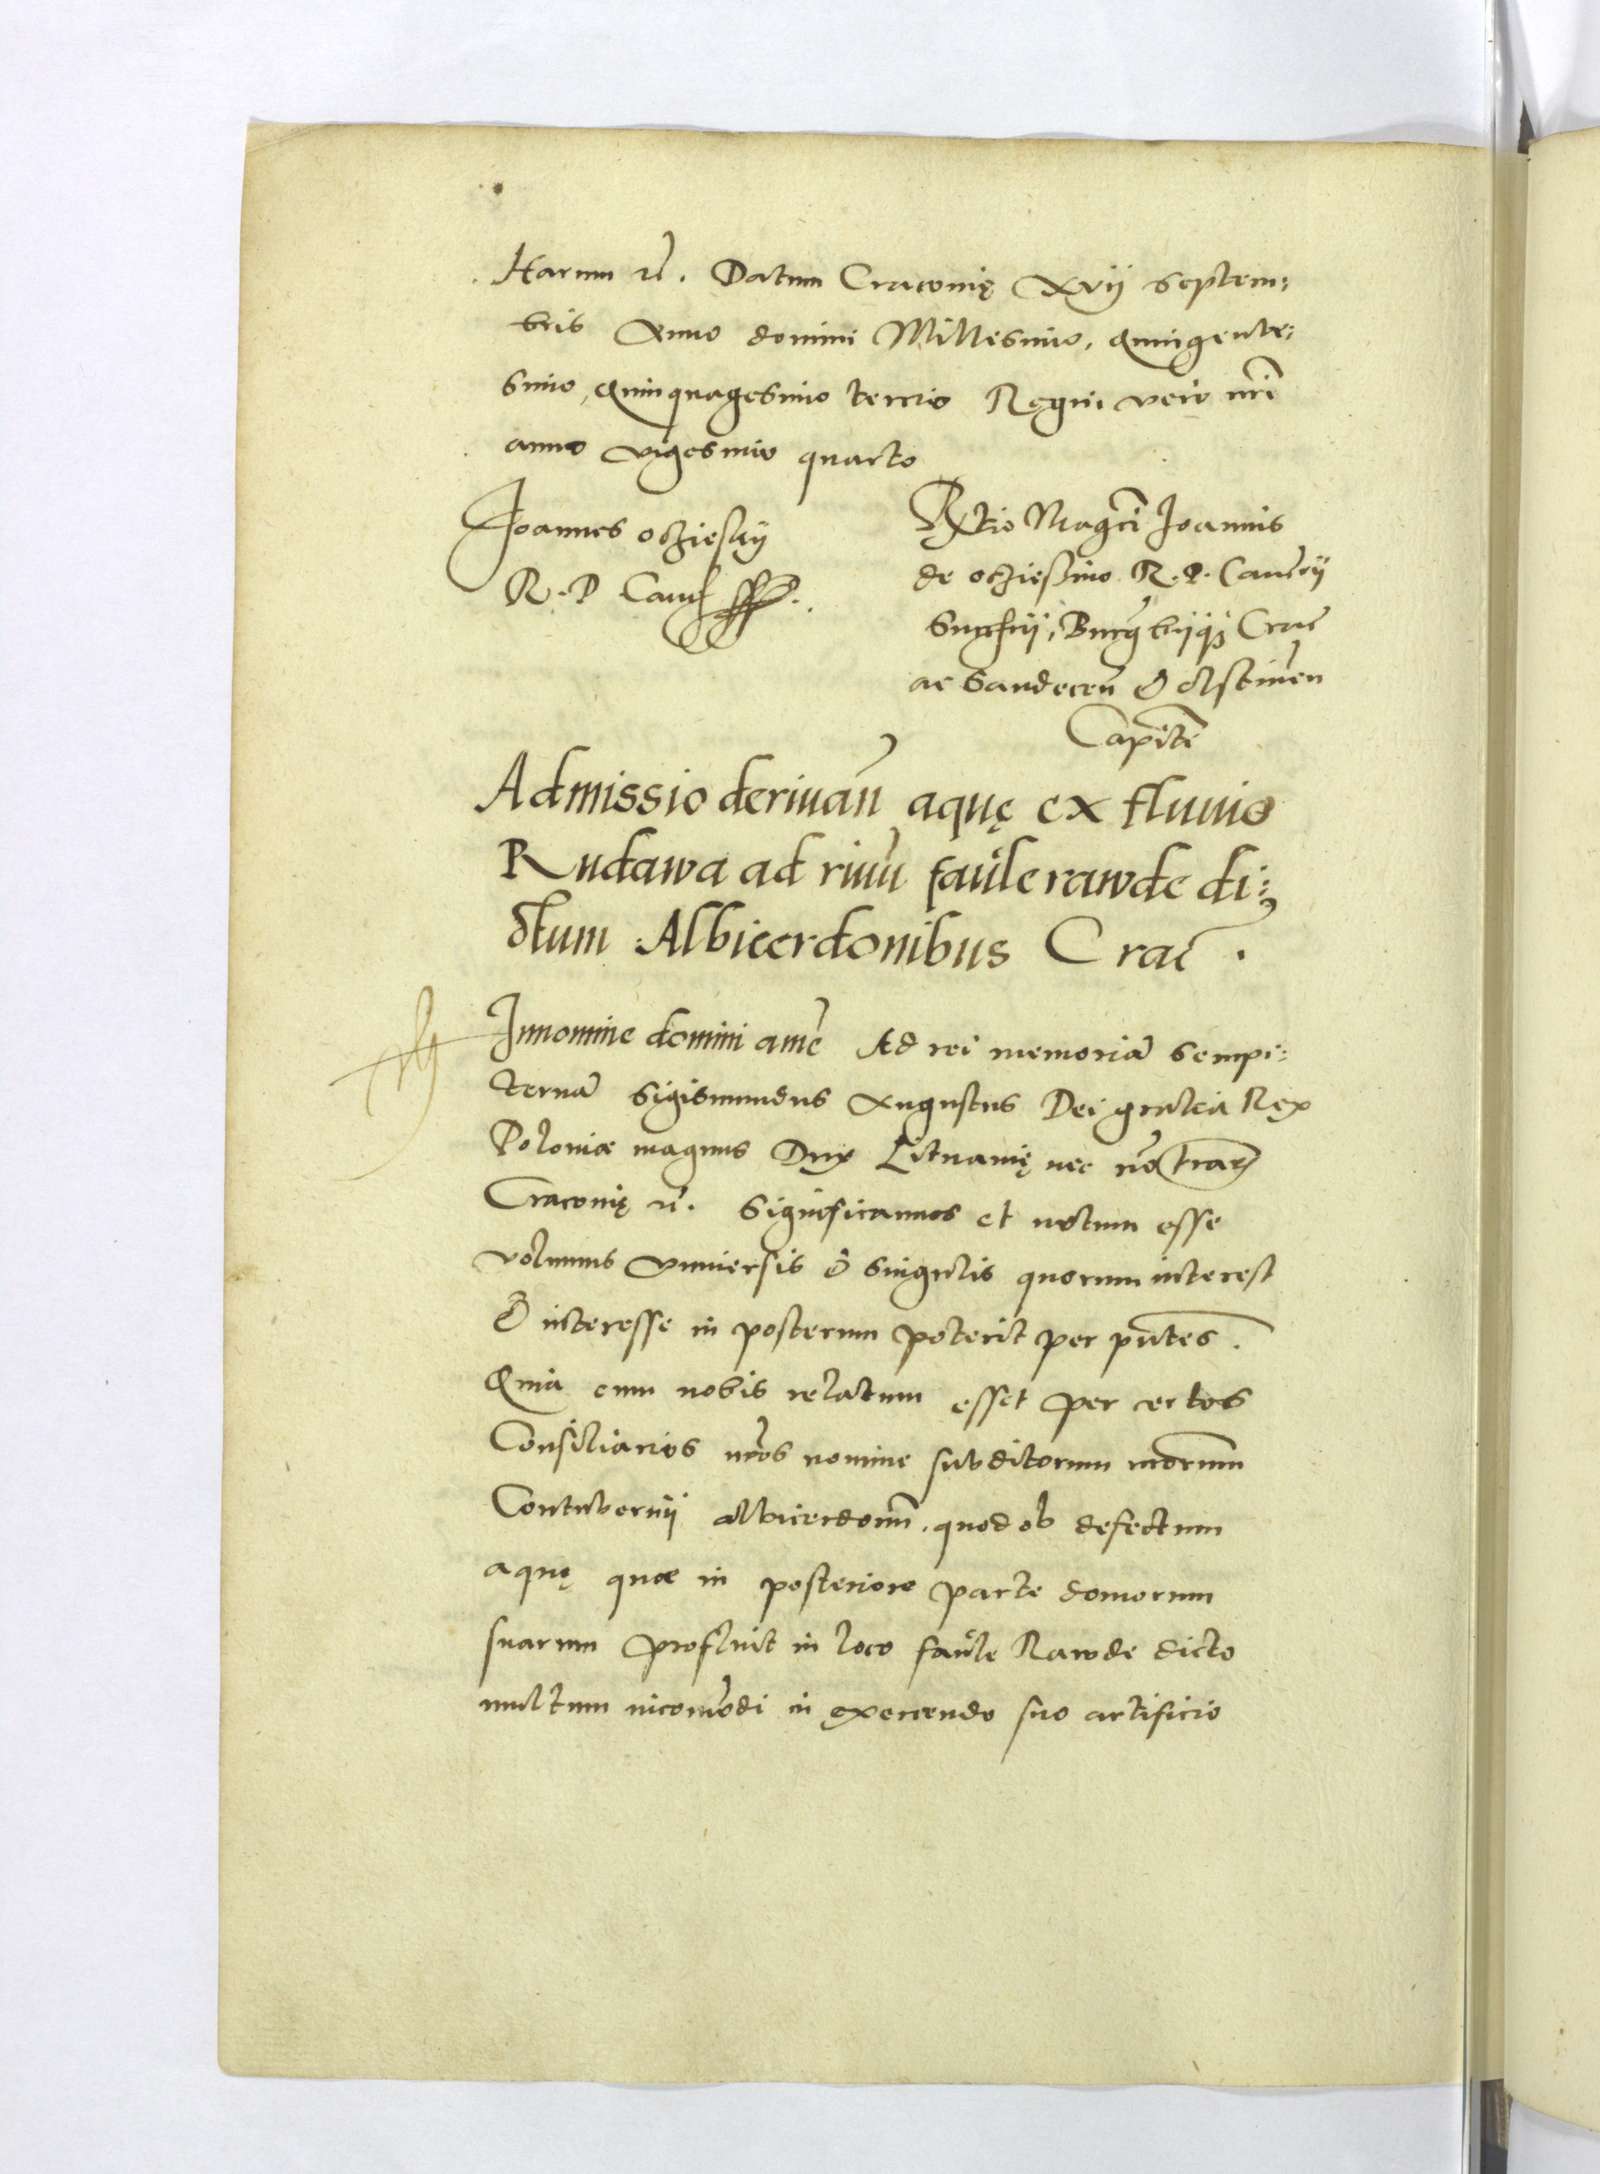 Harum rc̄. Datum Cracovię xvij Septem:
bris Anno domini Millesimo, Quingente:
simo, Quinquagesimo tercio Regni vero nr̄i
anno vigesimo quarto
Joannes oczieskij
R. P. Canc̄
Rl̄tio Mag̃ci Joannis
de oczieſſino R. P. Canc̄rij
Succ̄rij, Burg̃bijq̨ꝫ Crac̄
ac Sandecen̄ & Olstinen̄
Capitē
Admissio derivan̄ aquę ex fluvio
Rudawa ad rivū faŭle rawde di:
ctum Albicerdonibus Crac̄.
Innomine domini amē Ad rei memoriā sempi:
ternā Sigismundus Augustus Dei gratia Rex
Poloniæ magnus Dux Lituanię nec nō terrar̄
Cracovię rc̄. Significamus et notum esse
volumus vniversis & singulis quorum interest
& interesse in posterum poterit per pn̄tes.
Quia cum nobis relatum esset per certos
Consiliarios nr̄os nomine subditorum nr̄orum
Contubernij albicerdonū. quod ob defectum
aquę quæ in posteriore parte domorum
suarum profluit in loco faŭle Rawde dicto
multum incōmodi in exercendo suo artificio